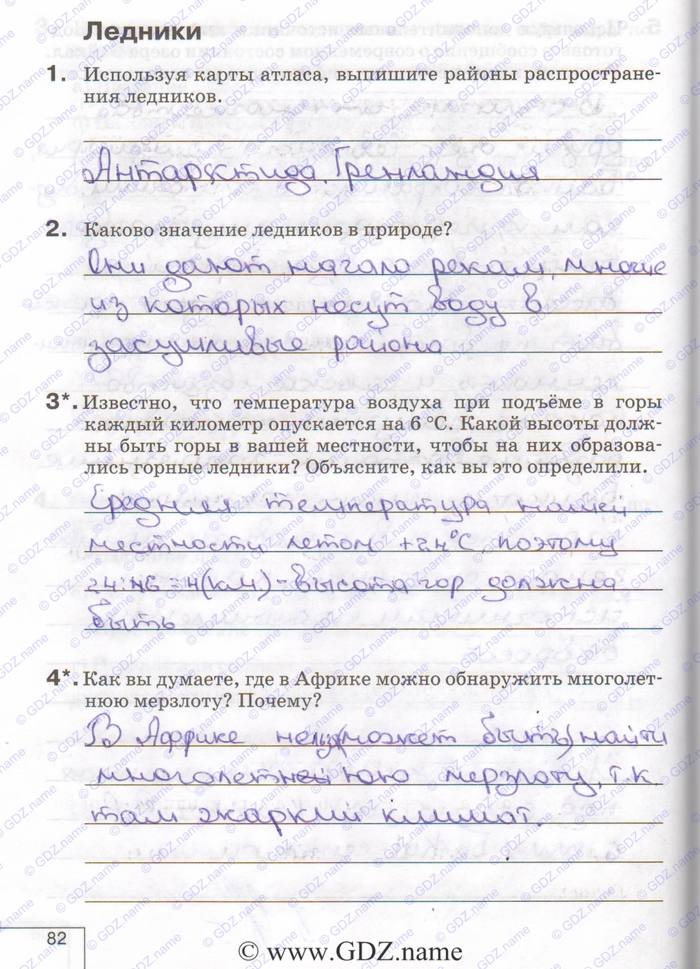 Ледники
1. Используя карты атласа, выпишите районы распростране-
ния ледников.
Антарктида, Гренландия
2. Каково значение ледников в природе?
Они дают начало рекам, многие
из которых несут воду в
засушливые района
3*. Известно, что температура воздуха при подъёме в горы
каждый километр опускается на 6 °С. Какой высоты долж-
ны быть горы в вашей местности, чтобы на них образова-
лись горные ледники? Объясните, как вы это определили.
Средняя температура нашей
местности летом +24°С, поэтому
24:6=4(км)-высота гор должна
быть
4*. Как вы думаете, где в Африке можно обнаружить многолет-
нюю мерзлоту? Почему?
В Африке найти
мерзлоту, т.к.
там жаркий климат.
82
© www.GDZ.name